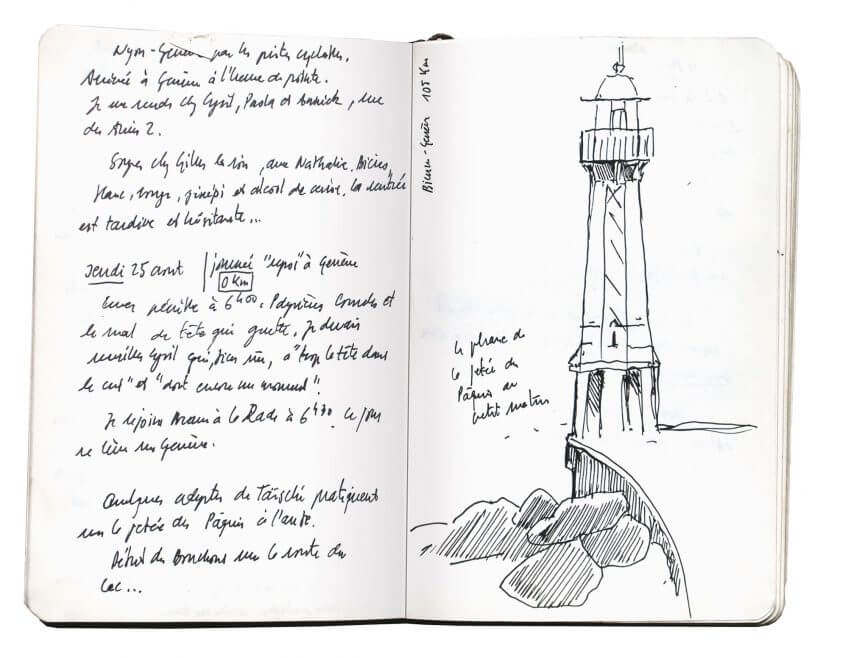 Nyon-Genève par les pistes cyclables.
Arrivée à Genève à l'heure de pointe.
Je me rends chez Cyril, Paola et Annick, rue
des 2.
Souper chez Gilles le , avec Nathalie. Bières,
blanc, rouge, génépi et alcool de cerise. La rentrée
est tardive et hésitante...
Jeudi 25 août journée "repos" à Genève
0 Km
Lever pénible à 6h00. Paupières lourdes et
le mal de tête qui guette. Je devais
réveiller Cyril qui, bien sûr, a "trop la tête dans
le cul" et "dort encore un moment".
Je rejoins à la Rade à 6h30. Le jour
se lève sur Genève.
Quelques adeptes de Taïchi pratiquent
sur la jetée des Pâquis à l'aube.
Début des bouchons sur la route du
Lac...
Bienne-Genève 105 Km
Le phare de
la jetée des
Pâquis au
petit matin